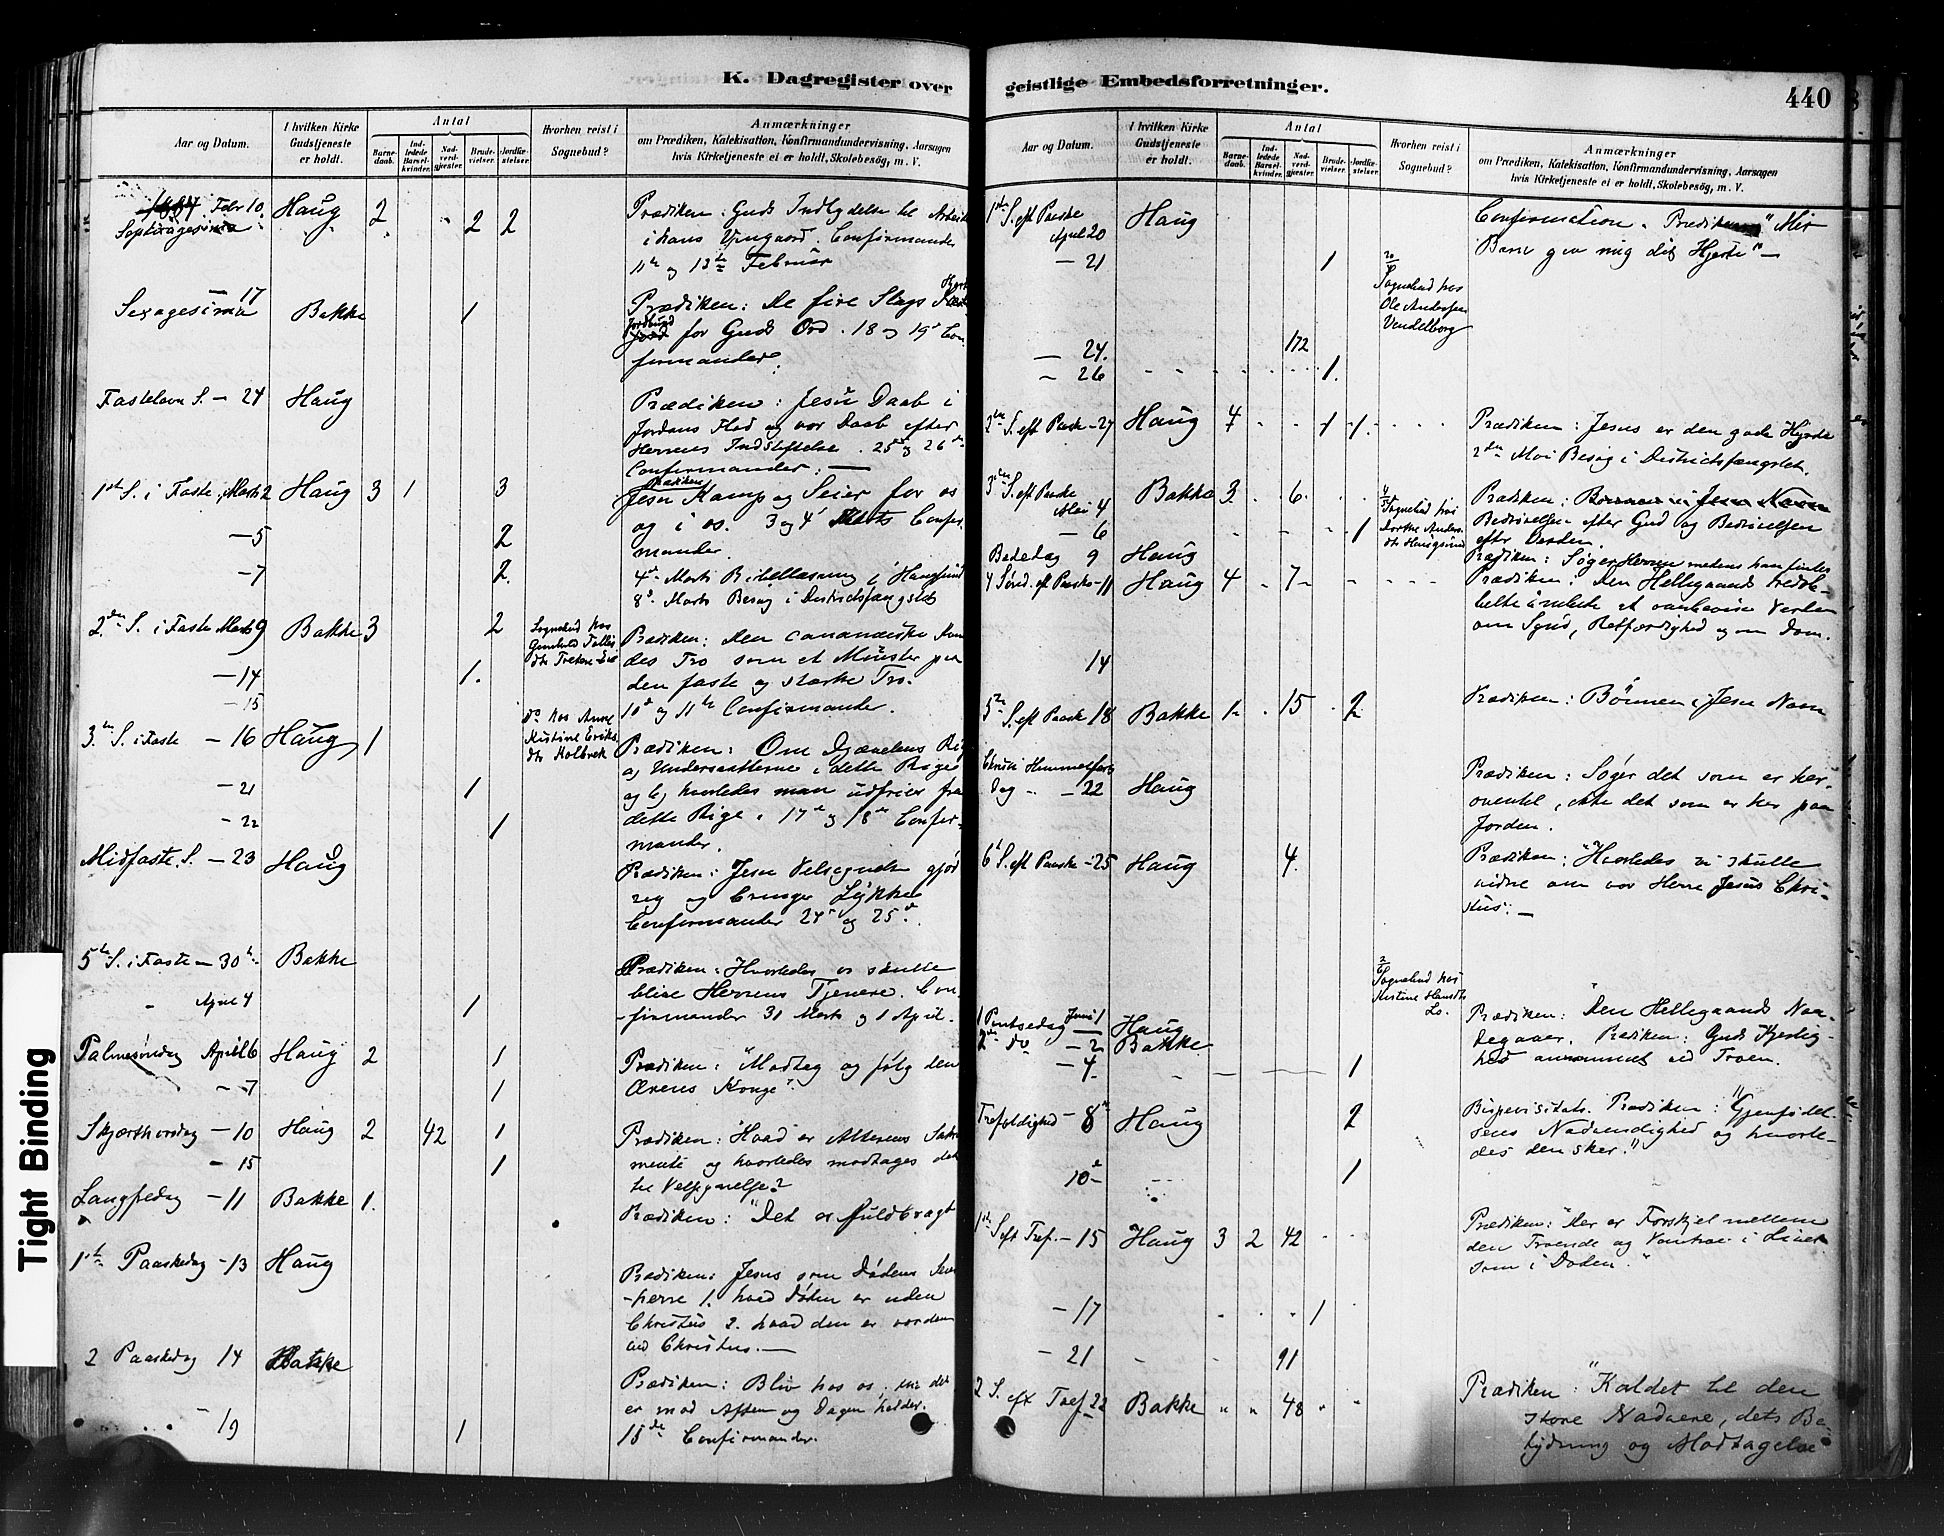 K. Dagregister over
Aar og Datum.
I hvilken Kirke Gudstjeneste er holdt.
Antal
Barnedaab.
Indledede Barselkvinder.
Nadverdgjester.
Brudevielser.
Jordfæstelser.
Hvorhen reist i Sognebud?
Anmærkninger
om Prædiken, Katekisation, Konfirmandundervisning, Aarsagen
hvis Kirketjeneste ei er holdt, Skolebesøg, m. V.
1884 Febr 10. Haug 2 2 2 Prædiken: Guds Indbydelse til
Septuagesima i hans Viingaard. Confirmander
11te og 13de Februar
Sexagesima — 17 Bakke 1 Prædiken: De fire Slags
Jordbund for Guds Ord. 18 og 19de Con
firmander.
Fastelavn S. — 24 Haug Prædiken: Jesu Daab i
Jordans Flod og vor Daab efter
Herrens Indstiftelse. 25de og 26de
Confirmander. —
1ste S. i Faste, Marts 2 Haug 3 1 3 Prædiken
Jesu Kamp og Seier for os
og i os. 3 og 4 Marts Confir
— 5 2 mander.
— 7 2. 4de Marts Bibellæsning i Haugsund
8de Marts Besøg i Distriktsfængslet
2den S. i Faste Marts 9 Bakke 3 2 Sognebud hos
Prædiken: Den cananæiske Kvin
des Tro som et Mønster paa
— 14 1. den faste og stærke Tro.
— 15 do hos Anne 10de og 11te Confirmander.
Kristine Eriks
dtr Kolbrek
3die S. i Faste — 16 Haug 1 Prædiken: Om Djævelens Rige
a, Undersaatterne i dette Rige
— 21 1 og b, hvorledes man udfries fra
— 22 1 dette Rige. 17de og 18de Confir-
mander.
Midfaste S. — 23 Haug Prædiken: Jesu Velsignelse gjør
rig og bringer Lykke
Confirmander 24de og 25de.
5te S. i Faste — 30te Bakke Prædiken: Hvorledes vi skulle
blive Herrens Tjenere. Con
April 4 1 -firmander 31 Marts og 1 April.
Palmesøndag April 6 Haug 2 1 Prædiken: "Modtag og følg den
— 7 1 Ærens Konge".
Skjærthorsdag — 10 Haug 2 42 1 Prædiken: "Hvad er Alterens Sakra
mente og hvorledes modtages det
— 15 1 til Velsignelse?
Langfredag — 11 Bakke 1. Prædiken: "Det er fuldbragt
1ste Paaskedag — 13 Haug Prædiken: Jesus som Dødens
-herre 1. hvad Døden er uden
Christus 2. hvad den er vorden
ved Christus. —
2 Paaskedag 14 Bakke Prædiken: Bliv hos os, thi det
er mod Aften og Dagen helder.
— 19 1 15de Confirmander.
geistlige Embedsforretninger.
440
Aar og Datum.
I hvilken Kirke Gudstjeneste er holdt.
Antal
Barnedaab.
Indledede Barselkvinder.
Nadverdgjester.
Brudevielser.
Jordfæstelser.
Hvorhen reist i Sognebud?
Anmærkninger
om Prædiken, Katekisation, Konfirmandundervisning, Aarsagen
hvis Kirketjeneste ei er holdt, Skolebesøg, m. V.
1ste S. eft Paaske Haug Confirmation. Prædiken "Mit
April 20 Barn giv mig dit Hjerte" —
— 21 1 Sognebud hos
Ole Andersen
Vendelborg
— 24. 172
— 26 1.
2den S. eft Paaske — 27 Haug 4 1 1. Prædiken: Jesus er den gode Hyrde
2den Mai Besøg i Distriktsfængslet.
3die S. eft Paaske Mai 4 Bakke 3 6 Sognebud hos
Dorthe Anders
dtr Haugsund
Prædiken: Bønnen i Jesu Navn
Bedrøvelsen efter Gud og Bedrøvelsen
efter Verden.
— 6 1
Bededag 9 Haug Prædiken: Søger Herren medens han findes
4 Sønd. eft Paaske — 11 Haug 4 7 Prædiken: Den Helligaand
at overbevise Verden
om Synd, Retfærdighed og om Dom.
14
5te S. eft Paaske 18 Bakke 1 15 2 Prædiken: Bønnen i Jesu Navn
Christi Himmelfarts
Dag — 22 Haug Prædiken: Søger det som er her
oventil, ikke det som er her paa
Jorden.
6te S. eft Paaske — 25 Haug 4. Prædiken: "Hvorledes vi skulle
vidne om vor Herre Jesus Chri-
stus. —
Sognebud hos
Kristine Hansdtr
Lo.
1 Pintsedag Juni 1 Haug Prædiken: "Den Helligaands Naa-
2den do — 2 Bakke degaver. Prædiken: Guds Kjerlig-
— 4 1 hed annammet ved Troen.
Trefoldighed — 8de Haug 2 Bispevisitats. Prædiken: "Gjenfødel-
sens Nødvendighed og hvorle-
des den sker."
10de 1
1ste S. eft Tref. — 15 Haug 3 2 42 Prædiken: "Der er Forskjel mellem
den Troende og Vantroe i Livet
som i Døden".
— 17 1
— 21 91
2 S. eft Tref 22 Bakke 48 Prædiken: "Kaldet til den
store Nadvere, dets Be
tydning og Modtagelse
Tight Binding